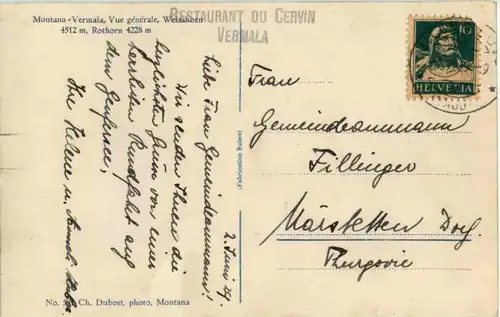 Montana-Vermala, Vue générale, Weisshorn
4512 m, Rothorn 4228 m
RESTAURANT DU CERVIN
VERMALA
10
HELVETIA
2. Juni 29.
Liebe Frau Gemeindeammann!
Wir senden Ihnen die
herzlichsten Grüsse von einer
herrlichen Rundfahrt auf
dem Genfersee.
Ihre Helene u.
(Fabrication Suisse)
Frau
Gemeindeammann
Fillinger
Märstetten Dorf.
Thurgovie
No. Ch. Dubost, photo, Montana